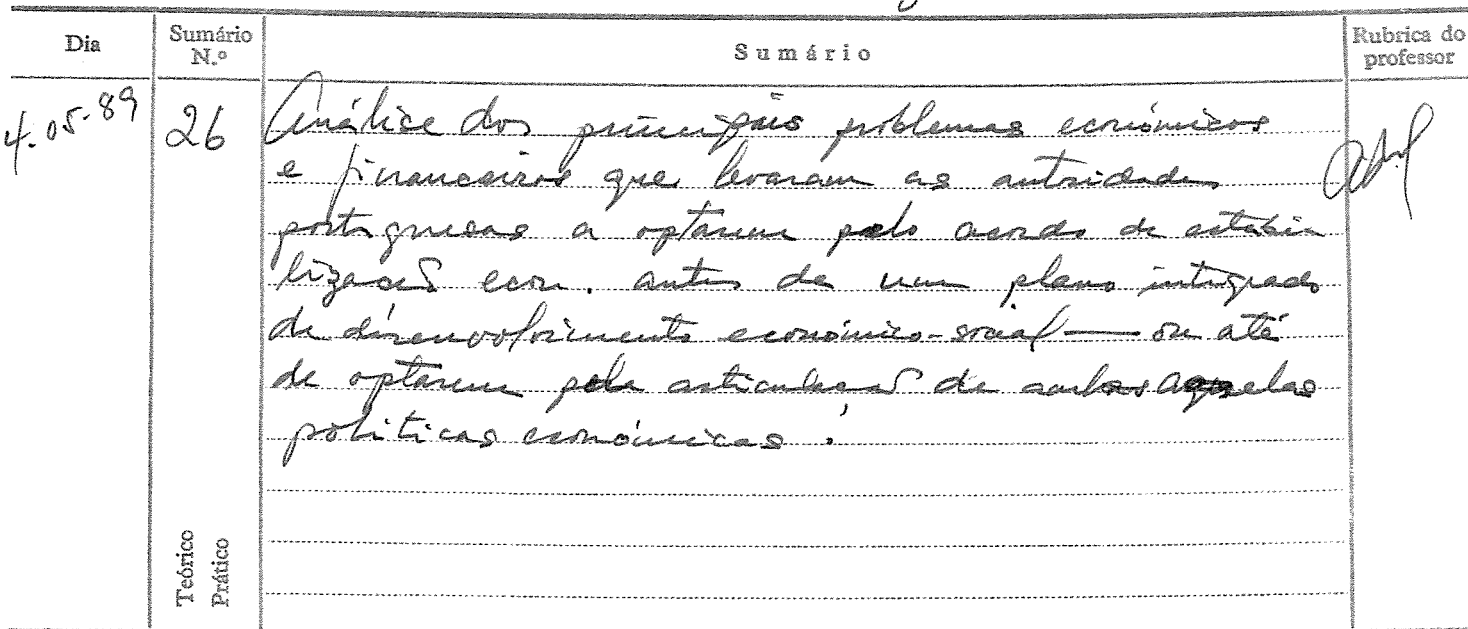 Dia
Sumário N.º
Sumário
Rubrica do professor
4.05.89
26
Análice dos principais problemas económicos
e financeiros que levaram as autoridades
portuguesas a optarem pelo acordo de estabi
lização econ. antes de um plano integrado
de desenvolvimento económico-social — ou até
de optarem pela articulação de ambas aquelas
políticas económicas.
Teórico
Prático